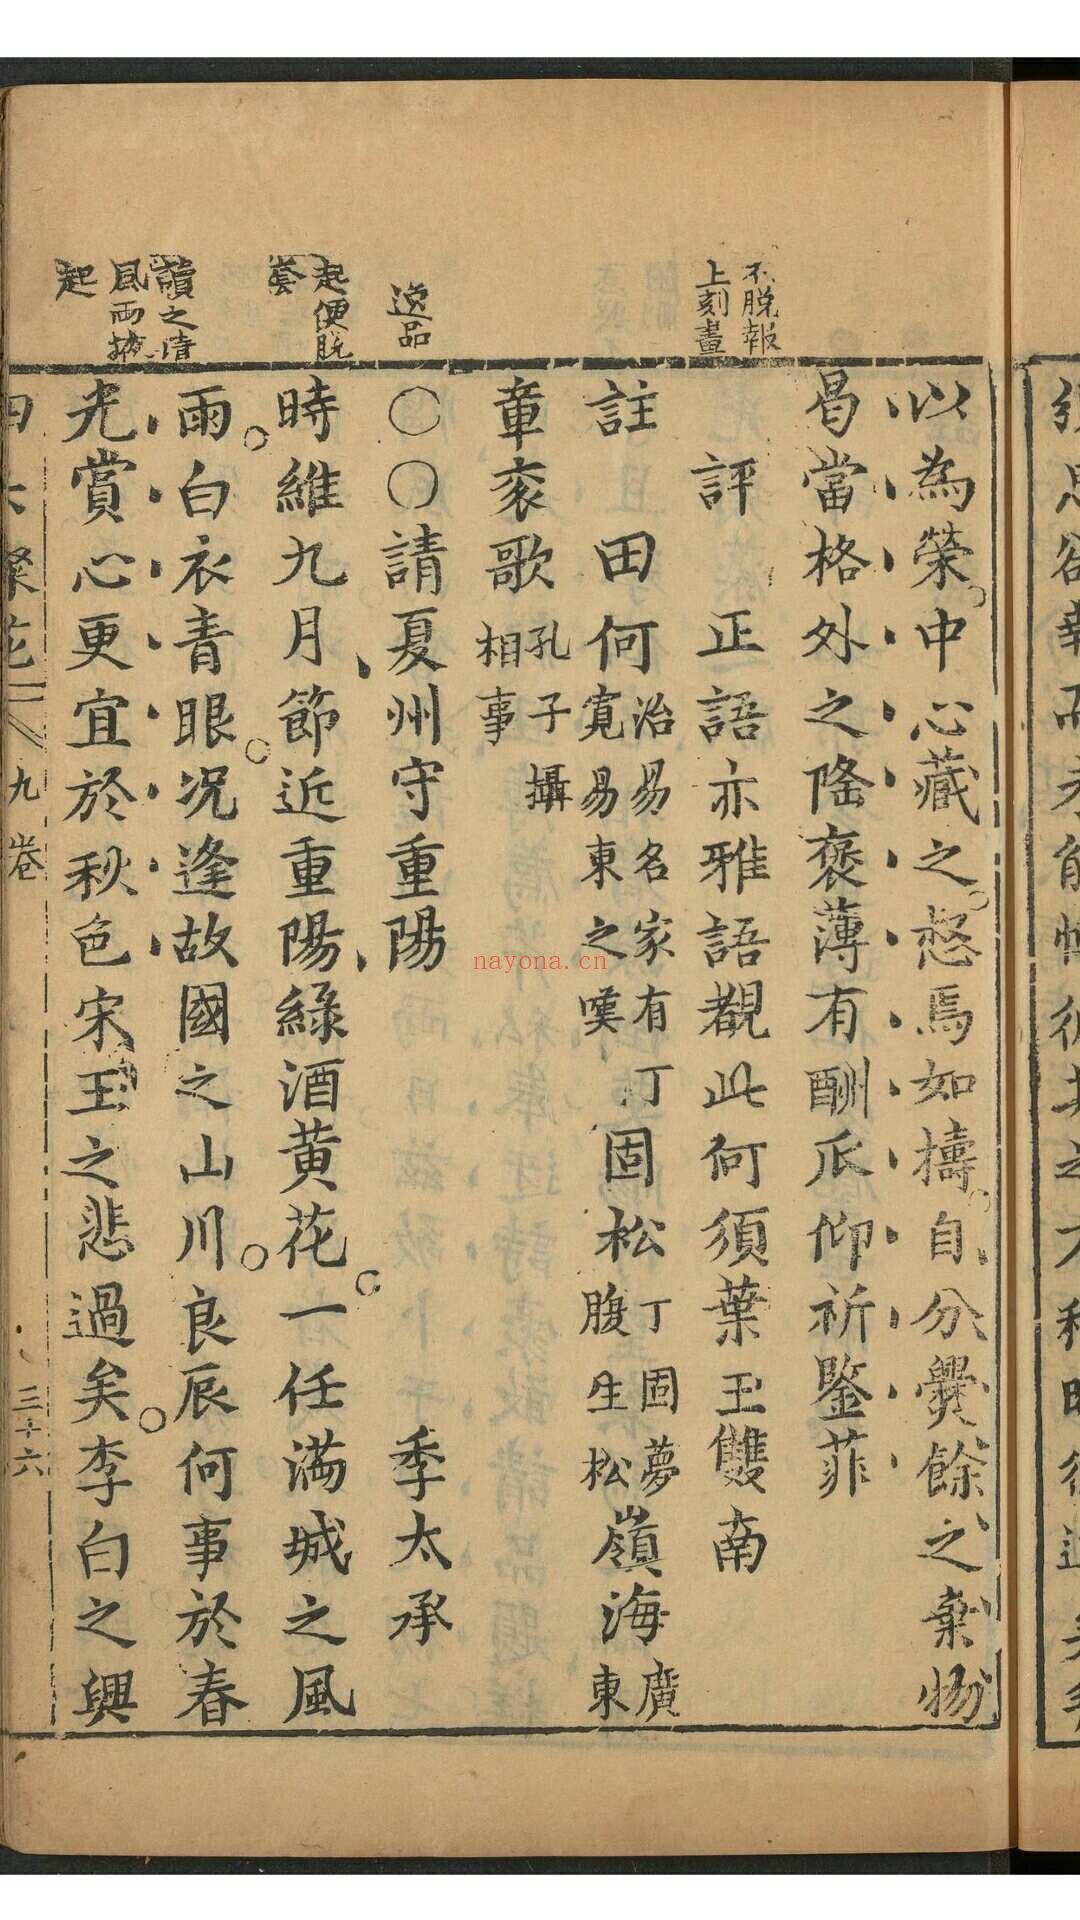 不脫報
上刻畫
逸品
起便脫
套
讀之清
風兩掖
起
以為榮中心藏之愁焉如擣自分爨餘之棄物
曷當格外之隆褒薄有酬爪仰祈鑒菲
評 正語亦雅語覯此何須葉玉雙南
註 田何
治易名家有丁
寬易東之嘆
固松
丁固夢
腹生松
嶺海
廣
東
章袞歌
孔子攝
相事
○○請夏州守重陽 季太承
時維九月節近重陽綠酒黃花一任滿城之風
雨白衣青眼况逢故國之山川良辰何事於春
光賞心更宜於秋色宋玉之悲過矣李白之興
花 九卷 三十六
nayona.cn